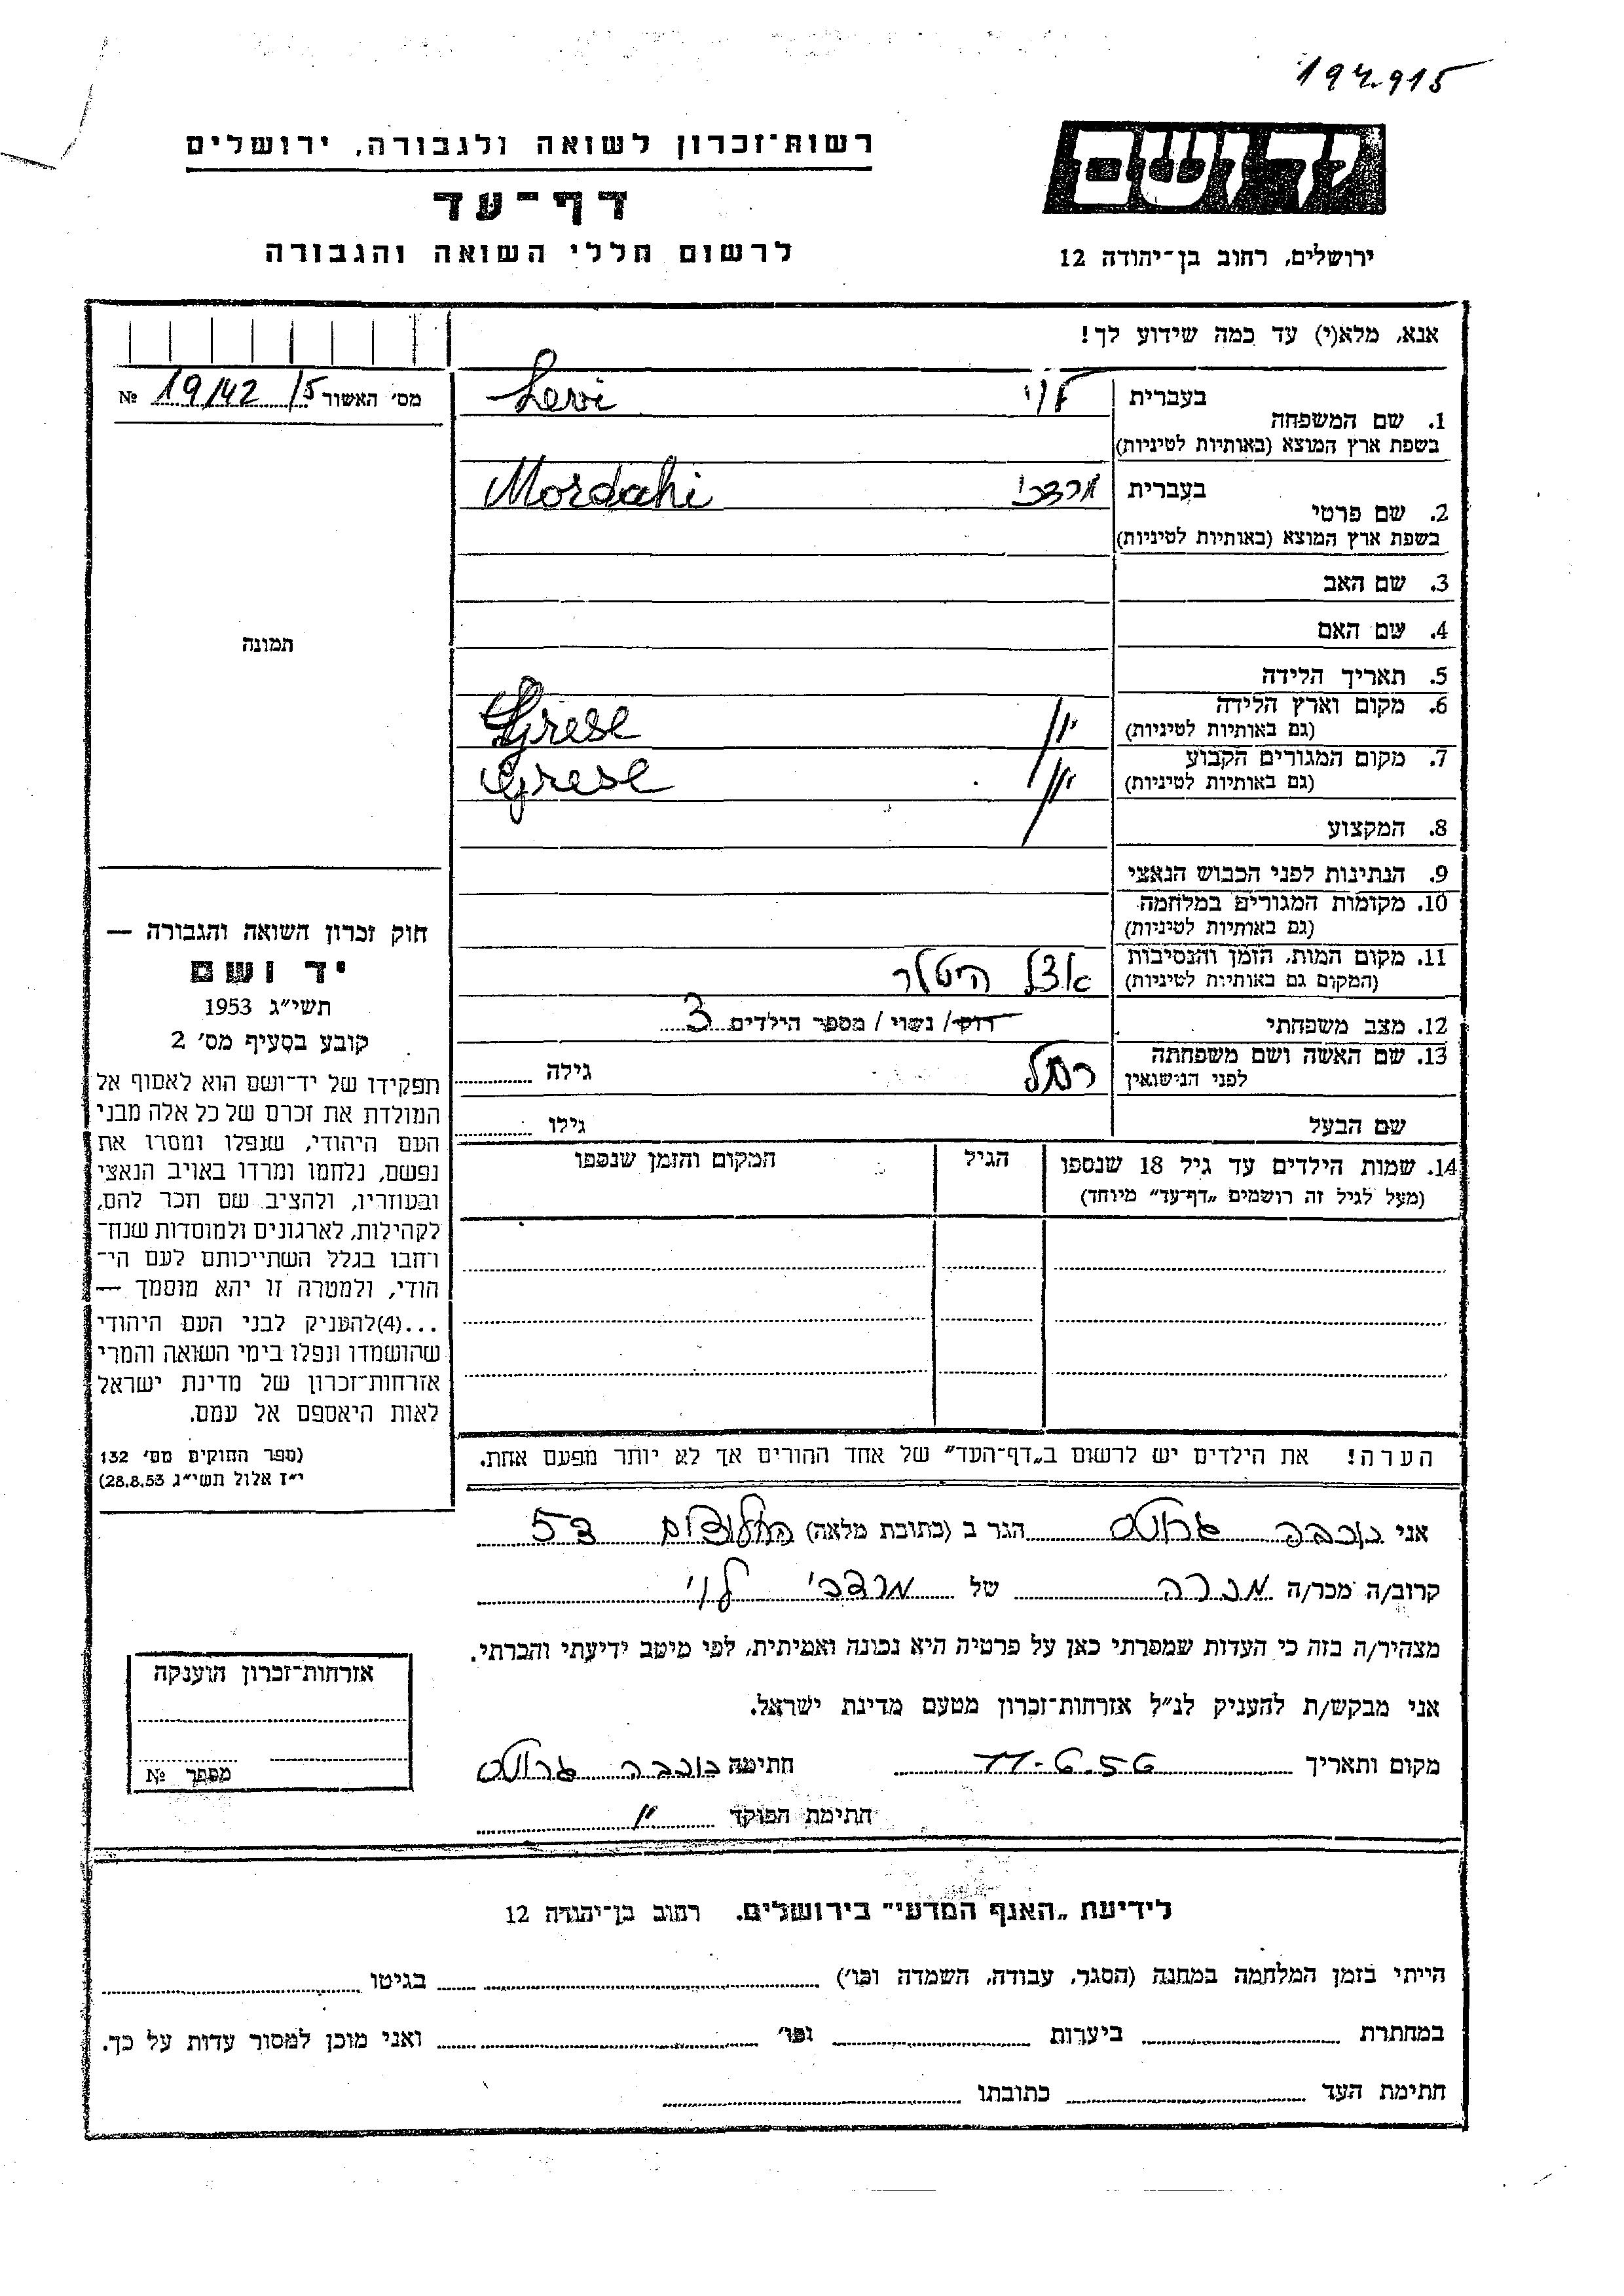 194.915
יד ושם
רשות־זכרון לשואה ולגבורה, ירושלים
דף־עד
לרשום חללי השואה והגבורה
ירושלים, רחוב בן־יהודה 12
אנא, מלא(י) עד כמה שידוע לך!
מס׳ האשור 19/42 /5 №
1. שם המשפחה
בעברית לוי
בשפת ארץ המוצא (באותיות לטיניות)
Levi
2. שם פרטי
בעברית מרדכי
בשפת ארץ המוצא (באותיות לטיניות)
Mordahi
3. שם האב
4. שם האם
5. תאריך הלידה
6. מקום וארץ הלידה
(גם באותיות לטיניות)
יון Grese
7. מקום המגורים הקבוע
(גם באותיות לטיניות)
יון Grese
8. המקצוע
9. הנתינות לפני הכבוש הנאצי
10. מקומות המגורים במלחמה
(גם באותיות לטיניות)
11. מקום המות, הזמן והנסיבות
(המקום גם באותיות לטיניות)
אצל היטלר
12. מצב משפחתי רוק/ נשוי / מספר הילדים 3
13. שם האשה ושם משפחתה
לפני הנישואין
רחל גילה
שם הבעל גילו
14. שמות הילדים עד גיל 18 שנספו הגיל המקום והזמן שנספו
(מעל לגיל זה רושמים „דף־עד״ מיוחד)
הערה! את הילדים יש לרשום ב„דף־העד״ של אחד ההורים אך לא יותר מפעם אחת.
תמונה
חוק זכרון השואה והגבורה —
יד ושם
תשי״ג 1953
קובע בסעיף מס׳ 2
תפקידו של יד־ושם הוא לאסוף אל
המולדת את זכרם של כל אלה מבני
העם היהודי, שנפלו ומסרו את
נפשם, נלחמו ומרדו באויב הנאצי
ובעוזריו, ולהציב שם וזכר להם,
לקהילות, לארגונים ולמוסדות שנח־
רבו בגלל השתייכותם לעם הי־
הודי, ולמטרה זו יהא מוסמך —
...(4)להעניק לבני העם היהודי
שהושמדו ונפלו בימי השואה והמרי
אזרחות־זכרון של מדינת ישראל
לאות היאספם אל עמם.
(ספר החוקים מס׳ 132
י״ז אלול תשי״ג 28.8.53)
אני הגר ב (כתובת מלאה) 53
קרוב/ה מכר/ה מכרה של מרדכי לוי
מצהיר/ה בזה כי העדות שמסרתי כאן על פרטיה היא נכונה ואמיתית, לפי מיטב ידיעתי והכרתי.
אני מבקש/ת להעניק לנ״ל אזרחות־זכרון מטעם מדינת ישראל.
מקום ותאריך 11-6.56 חתימה
חתימת הפוקד
אזרחות־זכרון הוענקה
מספר №
לידיעת „האגף המדעי״ בירושלים. רחוב בן־יהודה 12
הייתי בזמן המלחמה במחנה (הסגר, עבודה, השמדה וכו׳) בגיטו
במחתרת ביערות וכו׳ ואני מוכן למסור עדות על כך.
חתימת העד כתובתו